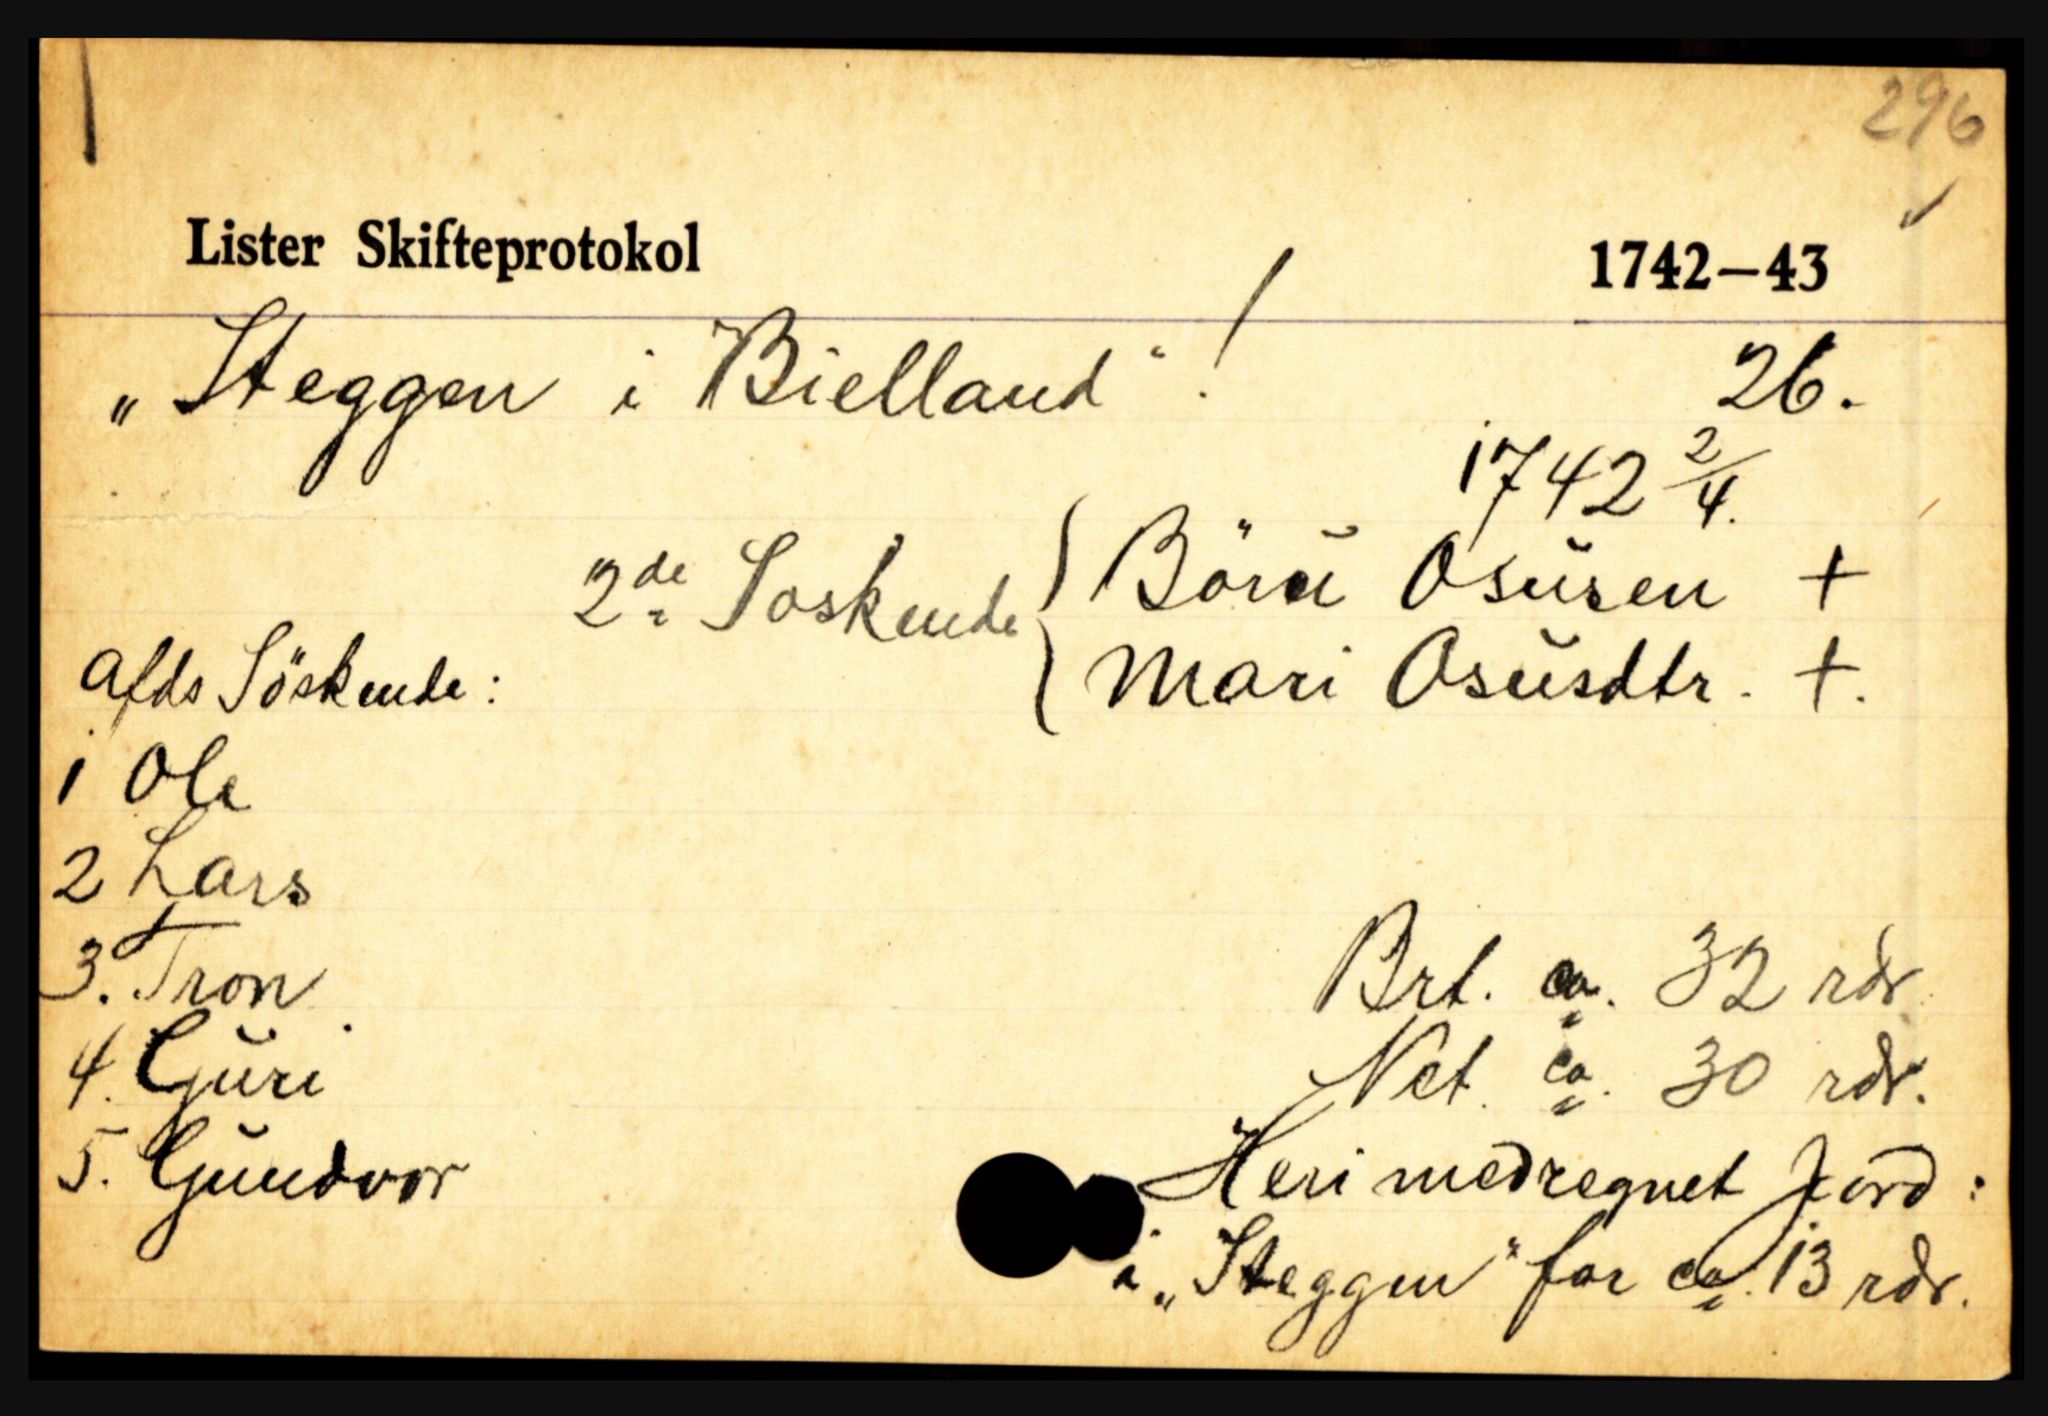 296
Lister Skifteprotokol 1742–43
„Steggen i Bielland“! 26.
1742 2/4.
2de Soskende { Böru Osusen +
Mari Osusdtr. +.
Afds Söskende:
1 Ole
2 Lars
3. Tron
4. Guri
5. Gundvor
Brt. ca. 32 rdr
Net. ca. 30 rdr.
Heri medregnet Jord:
i „Steggen“ for ca. 13 rdr.